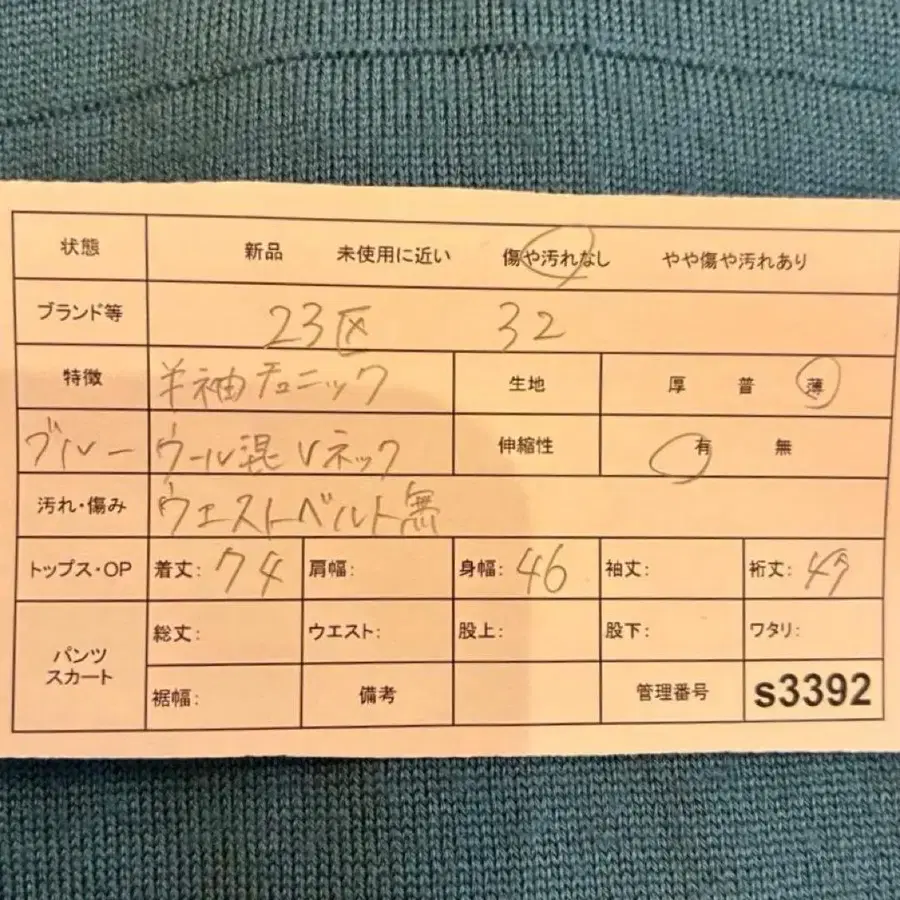 状態 新品 未使用に近い 傷や汚れなし やや傷や汚れあり
ブランド等 23区 32
特徴 半袖チュニック 生地 厚 普 薄
ブルー ウール混 Vネック 伸縮性 有 無
汚れ・傷み ウエストベルト無
トップス・OP 着丈: 74 肩幅: 身幅: 46 袖丈: 裄丈:
パンツ スカート 総丈: ウエスト: 股上: 股下: ワタリ:
裾幅: 備考 管理番号 s3392